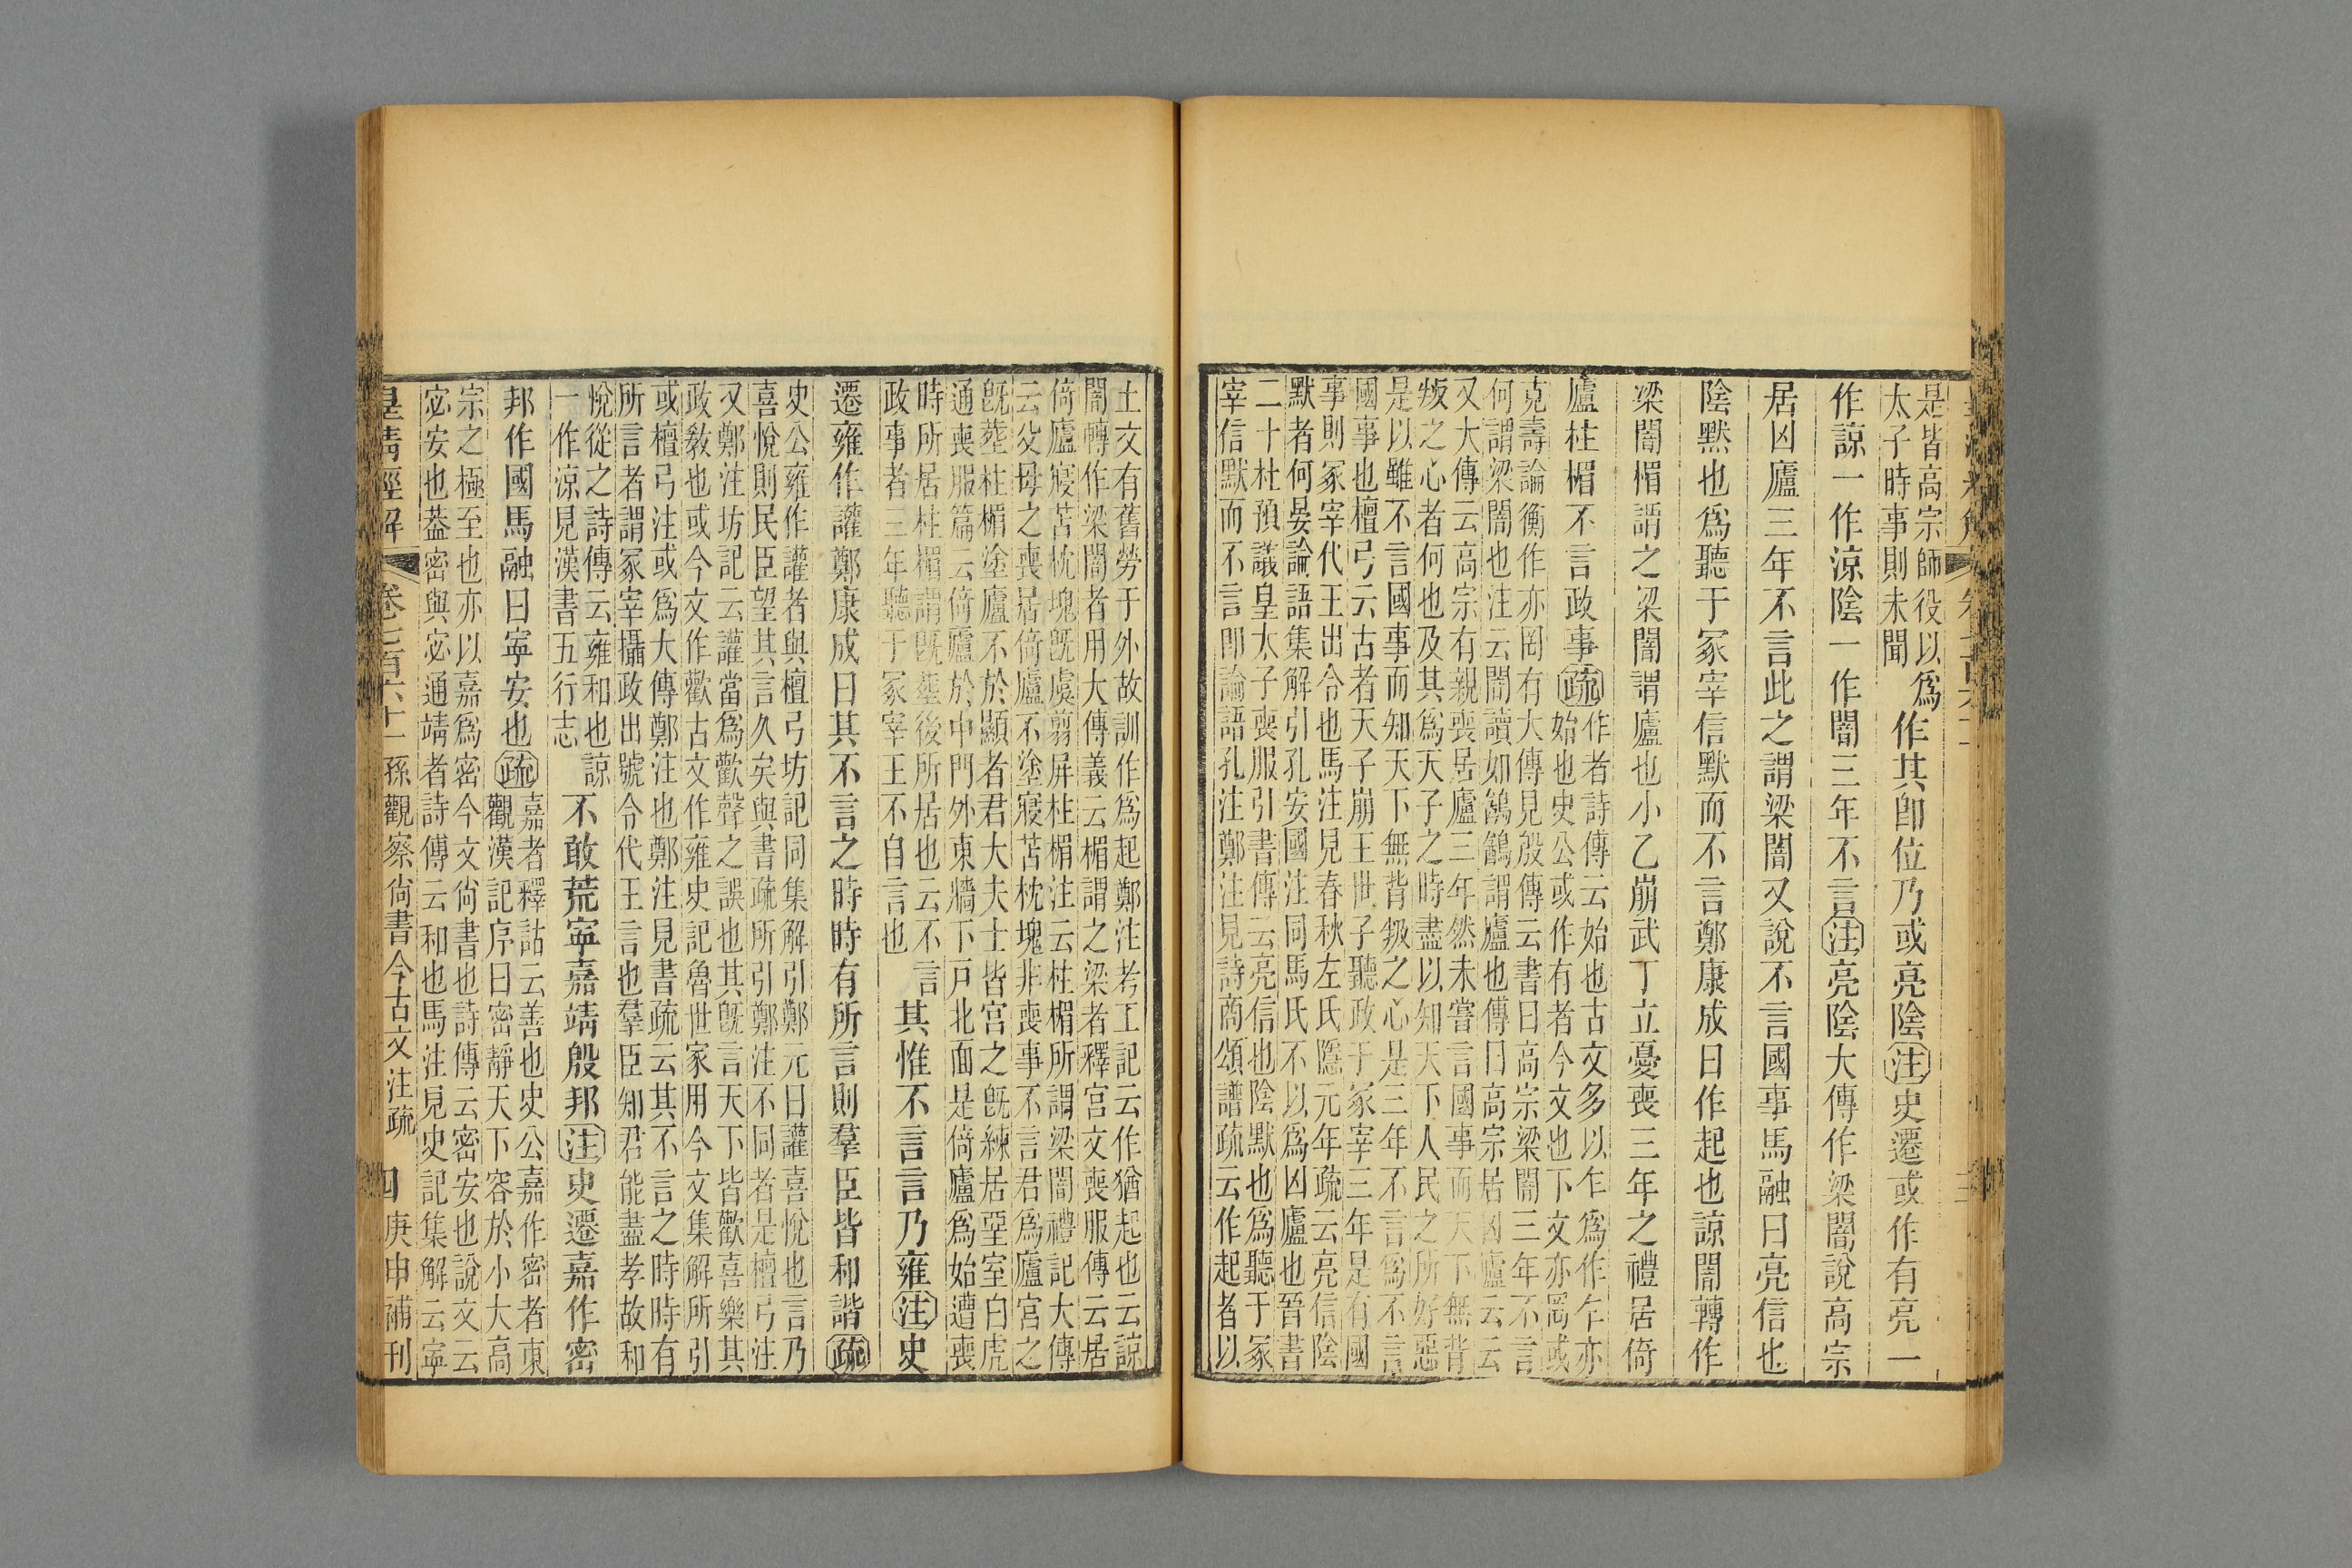 是皆高宗師役以爲
太子時事則未聞
作其卽位乃或亮陰注史遷或作有亮一
作諒一作涼陰一作闇三年不言注亮陰大傳作梁闇說高宗
居凶廬三年不言此之謂梁闇又說不言國事馬融曰亮信也
陰默也爲聽于冢宰信默而不言鄭康成曰作起也諒闇轉作
梁闇楣謂之梁闇謂廬也小乙崩武丁立憂喪三年之禮居倚
廬柱楣不言政事疏
作者詩傳云始也古文多以乍爲作乍亦
始也史公或作有者今文也下文亦罔或
克壽論衡作亦罔有大傳見殷傳云書曰高宗梁闇三年不言
何謂梁闇也注云闇讀如鶉鶉謂廬也傳曰高宗居凶廬云云
又大傳云高宗有親喪居廬三年然未嘗言國事而天下無背
叛之心者何也及其爲天子之時盡以知天下人民之所好惡
是以雖不言國事而知天下無背叛之心是三年不言爲不言
國事也檀弓云古者天子崩王世子聽政于冢宰三年是有國
事則冢宰代王出令也馬注見春秋左氏隱元年疏云亮信陰
默者何晏論語集解引孔安國注同馬氏不以爲凶廬也晉書
二十杜預議皇太子喪服引書傳云亮信也陰默也爲聽于冢
宰信默而不言卽論語孔注鄭注見詩商頌譜疏云作起者以
上文有舊勞于外故訓作爲起鄭注考工記云作猶起也云諒
闇轉作梁闇者用大傳義云楣謂之梁者釋宮文喪服傳云居
倚廬寢苫枕塊旣虞翦屏柱楣注云柱楣所謂梁闇禮記大傳
云父母之喪居倚廬不塗寢苫枕塊非喪事不言君爲廬宮之
旣葬柱楣塗廬不於顯者君大夫士皆宮之旣練居堊室白虎
通喪服篇云倚廬於中門外東牆下戸北面是倚廬爲始遭喪
時所居柱楣謂旣葬後所居也云不言
政事者三年聽于冢宰王不自言也
其惟不言言乃雍注史
遷雍作讙鄭康成曰其不言之時時有所言則羣臣皆和諧疏
史公雍作讙者與檀弓坊記同集解引鄭元曰讙喜悅也言乃
喜悅則民臣望其言久矣與書疏所引鄭注不同者是檀弓注
又鄭注坊記云讙當爲歡聲之誤也其旣言天下皆歡喜樂其
政敎也或今文作歡古文作雍史記魯世家用今文集解所引
或檀弓注或爲大傳鄭注也鄭注見書疏云其不言之時時有
所言者謂冢宰攝政出號令代王言也羣臣知君能盡孝故和
悅從之詩傳云雍和也諒
一作涼見漢書五行志
不敢荒寧嘉靖殷邦注史遷嘉作密
邦作國馬融曰寧安也疏
嘉者釋詁云善也史公嘉作密者東
觀漢記序曰密靜天下容於小大高
宗之極至也亦以嘉爲密今文尙書也詩傳云密安也說文云
宓安也葢密與宓通靖者詩傳云和也馬注見史記集解云寧
皇淸經解 卷七百六十一 孫觀察尙書今古文注疏 四 庚申補刊